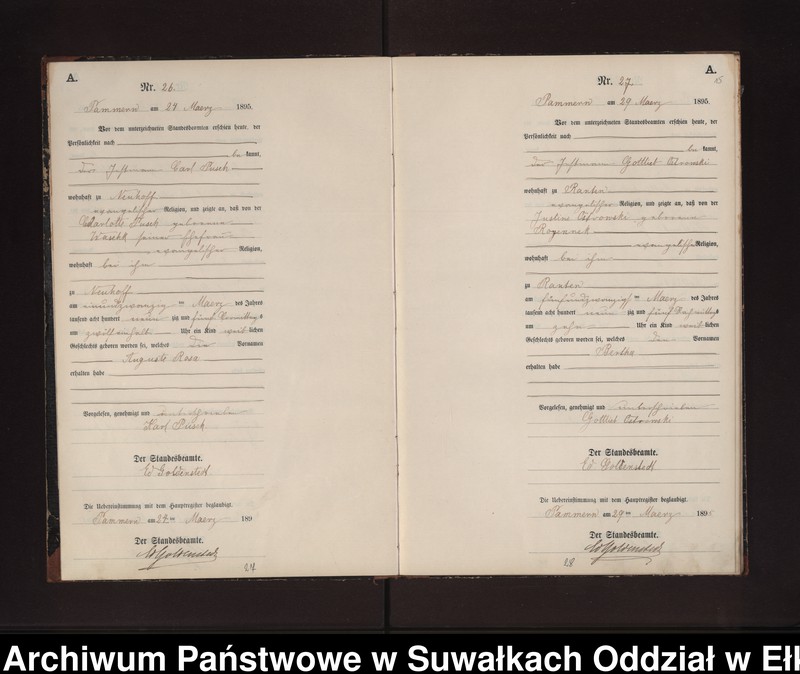 A.
Nr. 26.
Pammern am 24 Maerz 1895.
Vor dem unterzeichneten Standesbeamten erschien heute, der
Persönlichkeit nach
be kannt,
der Carl Busch
wohnhaft zu Neuhoff
evangelischer Religion, und zeigte an, daß von der
Charlotte Busch geborenen
seiner Ehefrau
evangelischer Religion,
wohnhaft bei ihm
zu Neuhoff
am einundzwanzig ten Maerz des Jahres
tausend acht hundert neun zig und fünf Vormittags
um zwölfeinhalb Uhr ein Kind weib lichen
Geschlechts geboren worden sei, welches die Vornamen
Auguste Rosa
erhalten habe
Vorgelesen, genehmigt und unterschrieben
Karl Busch
Der Standesbeamte.
Goldenstedt
Die Uebereinstimmung mit dem Hauptregister beglaubigt.
Pammern am 24ten Maerz 189
Der Standesbeamte.
Goldenstedt
24
A.
15
Nr. 27.
Pammern am 29 Maerz 1895.
Vor dem unterzeichneten Standesbeamten erschien heute, der
Persönlichkeit nach
be kannt,
der Gottlieb Ostrowski
wohnhaft zu Ranten
evangelischer Religion, und zeigte an, daß von der
Justine Ostrowski geborenen
evangelischer Religion,
wohnhaft bei ihm
zu Ranten
am fünfundzwanzigsten Maerz des Jahres
tausend acht hundert neun zig und fünf Nachmittags
um zehn Uhr ein Kind weib lichen
Geschlechts geboren worden sei, welches den Vornamen
Bertha
erhalten habe
Vorgelesen, genehmigt und unterschrieben
Gottlieb Ostrowski
Der Standesbeamte.
Goldenstedt
Die Uebereinstimmung mit dem Hauptregister beglaubigt.
Pammern am 29ten Maerz 1895
Der Standesbeamte.
Goldenstedt
28
Archiwum Państwowe w Suwałkach Oddział w Ełk